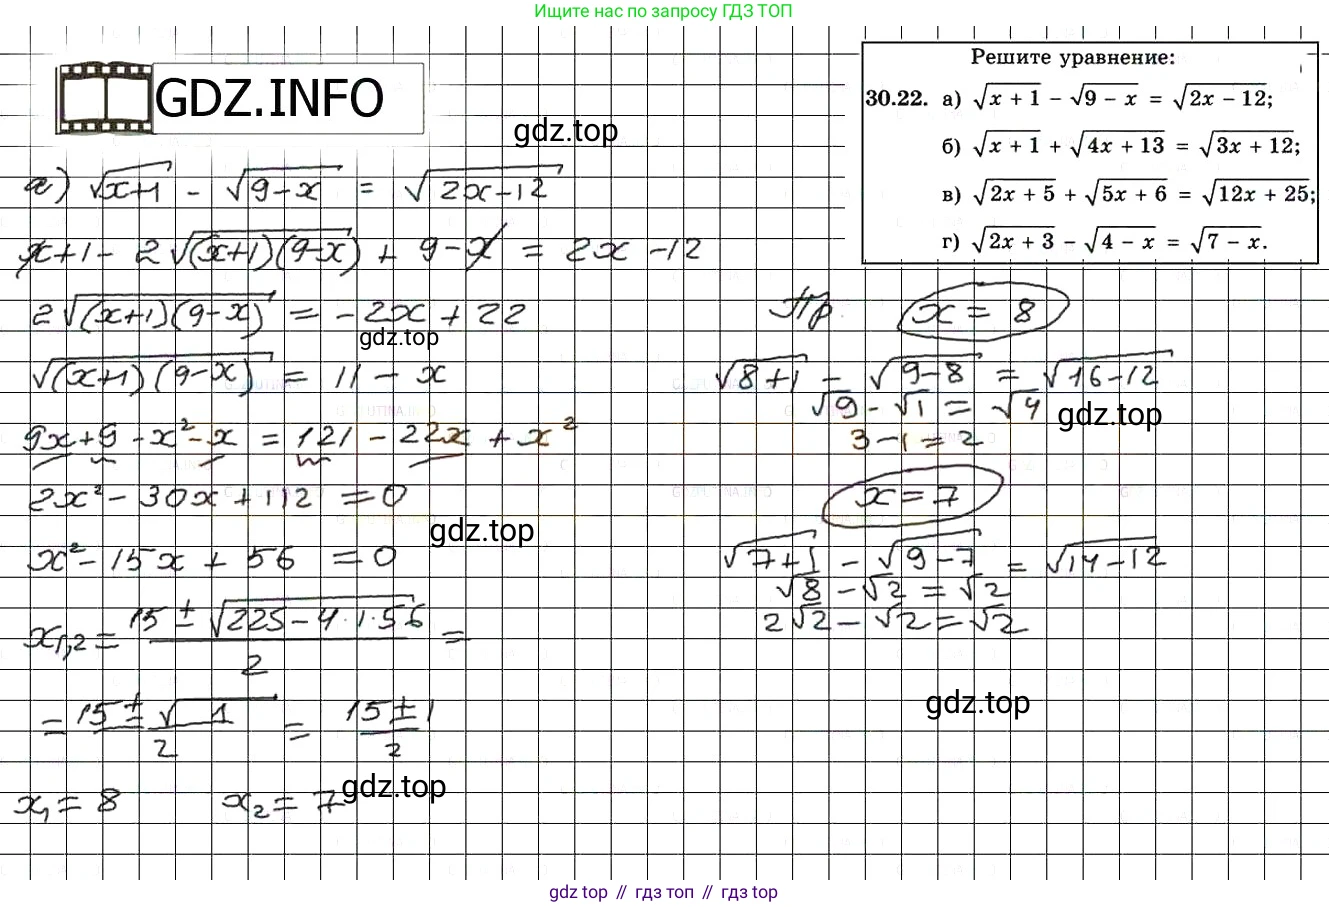 Ищите нас по запросу ГДЗ ТОП
GDZ.INFO
gdz.top
Решите уравнение:
30.22. а) √(x + 1) − √(9 − x) = √(2x − 12);
б) √(x + 1) + √(4x + 13) = √(3x + 12);
в) √(2x + 5) + √(5x + 6) = √(12x + 25);
г) √(2x + 3) − √(4 − x) = √(7 − x).
а) √(x+1) - √(9-x) = √(2x-12)
x+1 - 2√((x+1)(9-x)) + 9-x = 2x-12
2√((x+1)(9-x)) = -2x + 22
gdz.top
√((x+1)(9-x)) = 11 - x
9x+9-x²-x = 121 - 22x + x²
2x² - 30x + 112 = 0
gdz.top
x² - 15x + 56 = 0
x1,2 = (15 ± √(225-4·1·56))/2 =
= (15 ± √1)/2 = (15 ± 1)/2
gdz.top
x₁ = 8 x₂ = 7
Пр. x = 8
√(8+1) - √(9-8) = √(16-12)
√9 - √1 = √4
gdz.top
3-1 = 2
x = 7
√(7+1) - √(9-7) = √(14-12)
√8 - √2 = √2
2√2 - √2 = √2
gdz.top
gdz top // гдз топ // гдз top